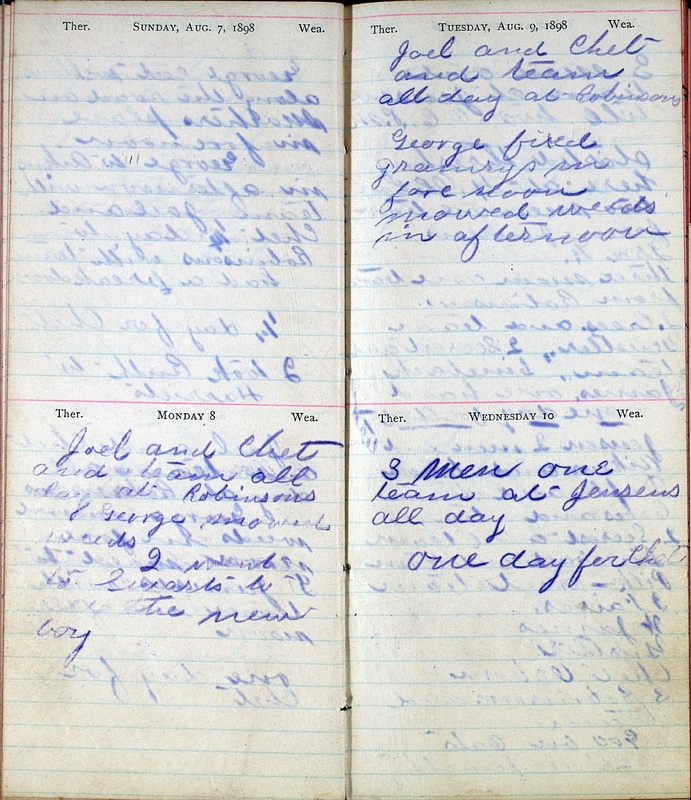 Ther. SUNDAY, AUG. 7, 1898 Wea.
"
Ther. MONDAY 8 Wea.
Joel and Chet
and team all
day at Robinsons
George mowed
weeds
2 went
to Swarts to
the new
boy
Ther. TUESDAY, AUG. 9, 1898 Wea.
Joel and Chet
and team
all day at Robinsons
George fixed
granrys in
fore noon
mowed weeds
in afternoon
Ther. WEDNESDAY 10 Wea.
3 men one
team at Jensens
all day
one day for Chet